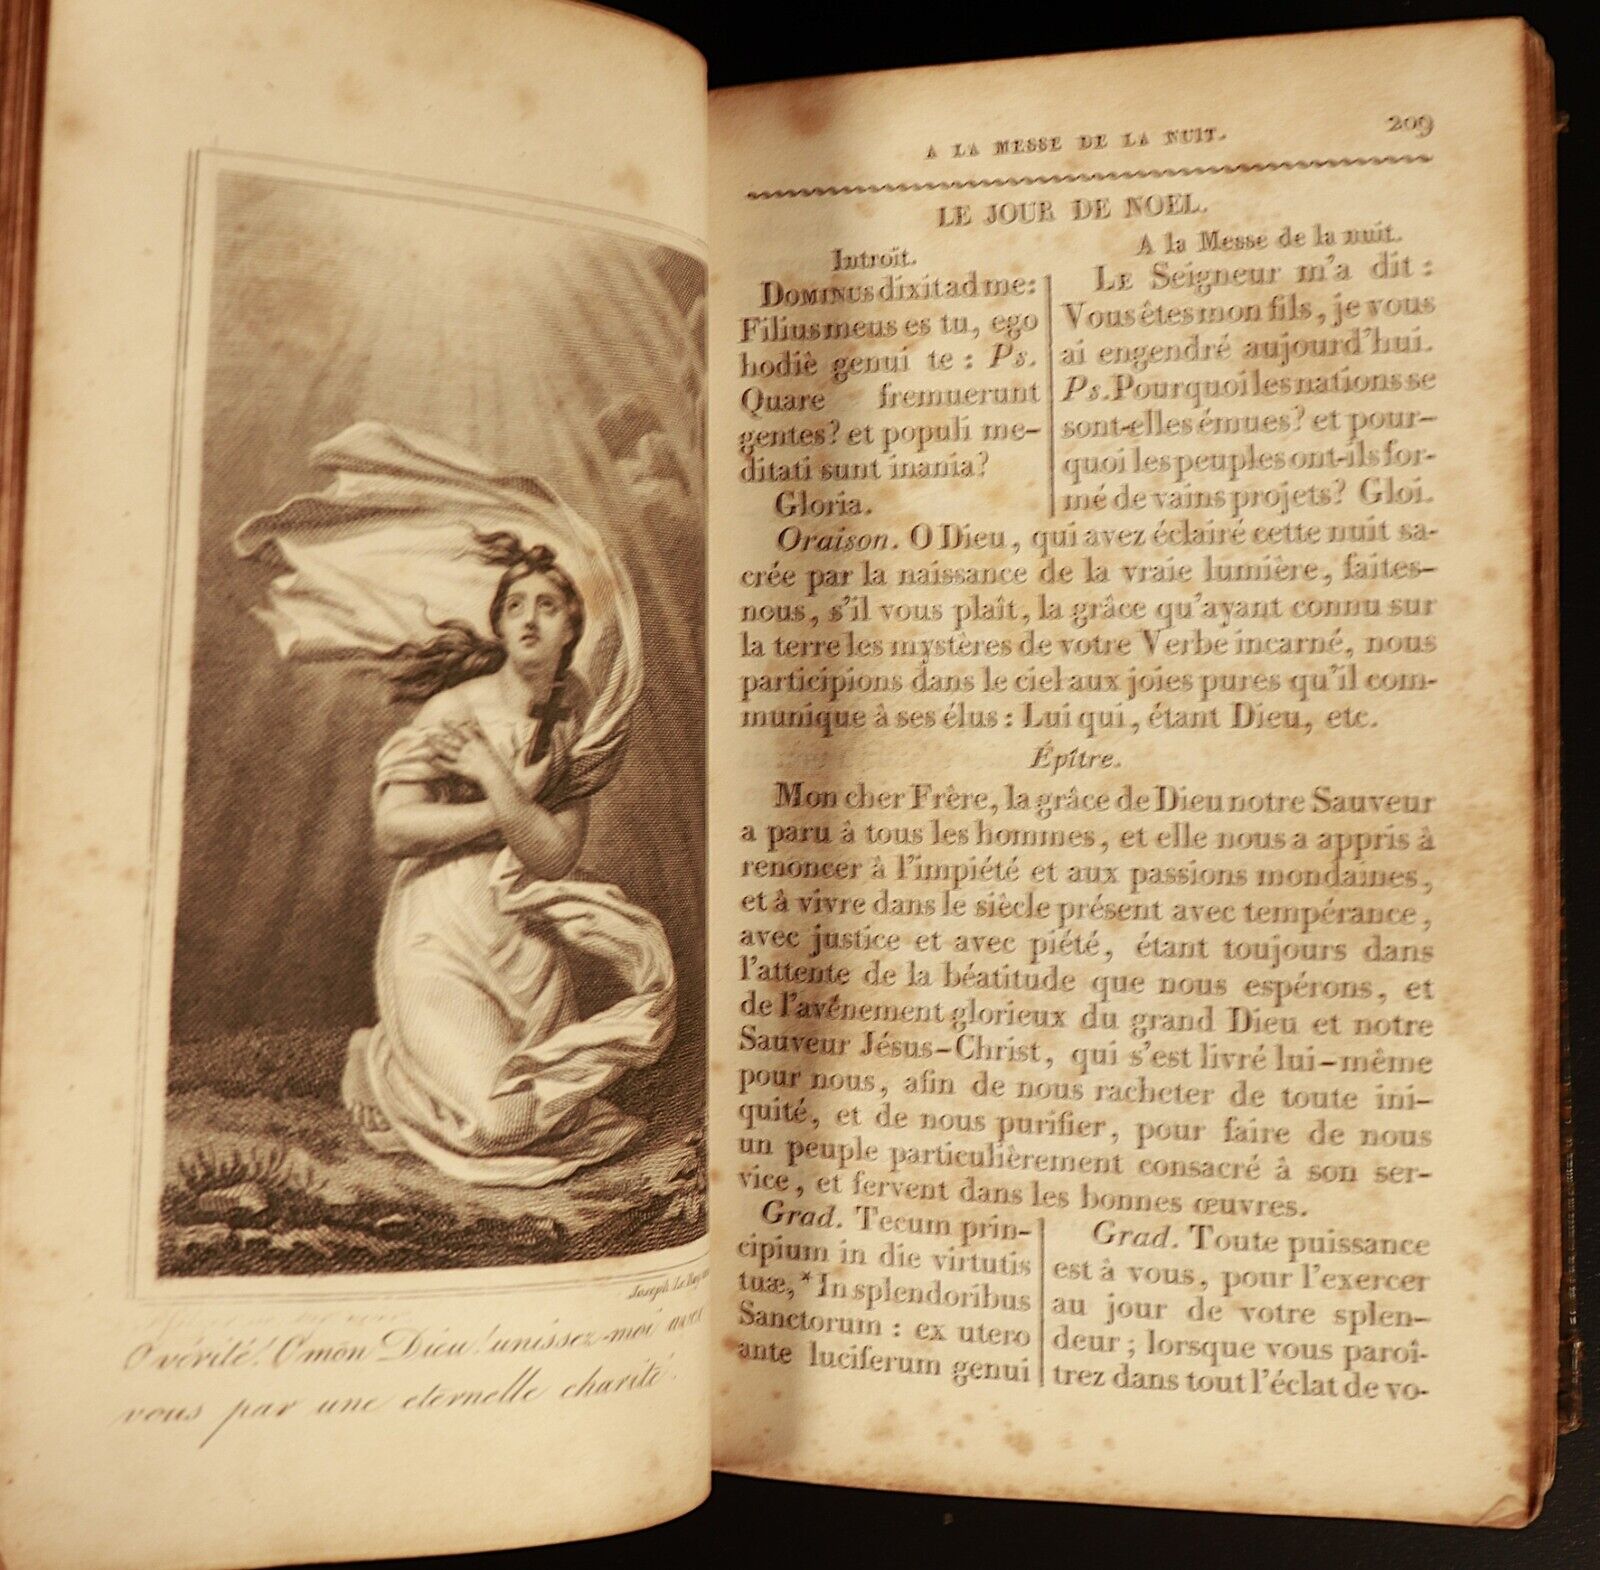 Joseph Le Roy
O vérité! O mon Dieu! unissez-moi avec
vous par une eternelle charité!
A LA MESSE DE LA NUIT.
209
LE JOUR DE NOEL.
Introït.
DOMINUS dixit ad me:
Filius meus es tu, ego
hodiè genui te : Ps.
Quare fremuerunt
gentes? et populi me-
ditati sunt inania?
Gloria.
A la Messe de la nuit.
LE Seigneur m'a dit :
Vous êtes mon fils, je vous
ai engendré aujourd'hui.
Ps. Pourquoi les nations se
sont-elles émues? et pour-
quoi les peuples ont-ils for-
mé de vains projets? Gloi.
Oraison. O Dieu, qui avez éclairé cette nuit sa-
crée par la naissance de la vraie lumière, faites-
nous, s'il vous plaît, la grâce qu'ayant connu sur
la terre les mystères de votre Verbe incarné, nous
participions dans le ciel aux joies pures qu'il com-
munique à ses élus : Lui qui, étant Dieu, etc.
Épître.
Mon cher Frère, la grâce de Dieu notre Sauveur
a paru à tous les hommes, et elle nous a appris à
renoncer à l'impiété et aux passions mondaines,
et à vivre dans le siècle présent avec tempérance,
avec justice et avec piété, étant toujours dans
l'attente de la béatitude que nous espérons, et
de l'avénement glorieux du grand Dieu et notre
Sauveur Jésus-Christ, qui s'est livré lui-même
pour nous, afin de nous racheter de toute ini-
quité, et de nous purifier, pour faire de nous
un peuple particulièrement consacré à son ser-
vice, et fervent dans les bonnes œuvres.
Grad. Tecum prin-
cipium in die virtutis
tuæ,* In splendoribus
Sanctorum : ex utero
ante luciferum genui
Grad. Toute puissance
est à vous, pour l'exercer
au jour de votre splen-
deur ; lorsque vous paroî-
trez dans tout l'éclat de vo-